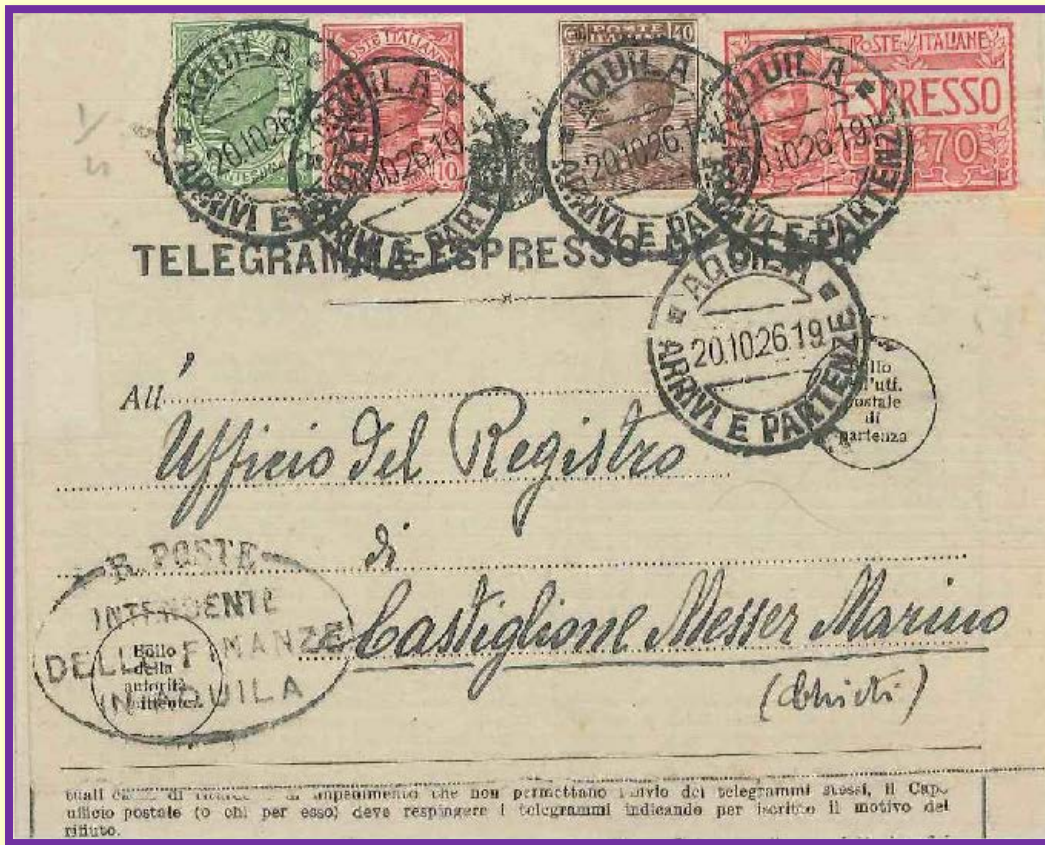 POSTE ITALIANE
10
POSTE
40
POSTE ITALIANE
ESPRESSO
70
AQUILA
20.10.26.19
ARRIVI E PARTENZE
AQUILA
20.10.26.19
ARRIVI E PARTENZE
AQUILA
20.10.26.19
ARRIVI E PARTENZE
AQUILA
20.10.26.19
ARRIVI E PARTENZE
TELEGRAMMA-ESPRESSO DI
AQUILA
20.10.26.19
ARRIVI E PARTENZE
Bollo
dell'uff.
postale
di
partenza
All'
Ufficio del Registro
di
Castiglione Messer Marino
(Chieti)
R. POSTE
INTENDENTE
DELLE FINANZE
IN AQUILA
Bollo
della
autorità
mittente
tuali di impedimento che non permettano l'invio dei telegrammi stessi, il Capo
ufficio postale (o chi per esso) deve respingere i telegrammi indicando per iscritto il motivo del
rifiuto.